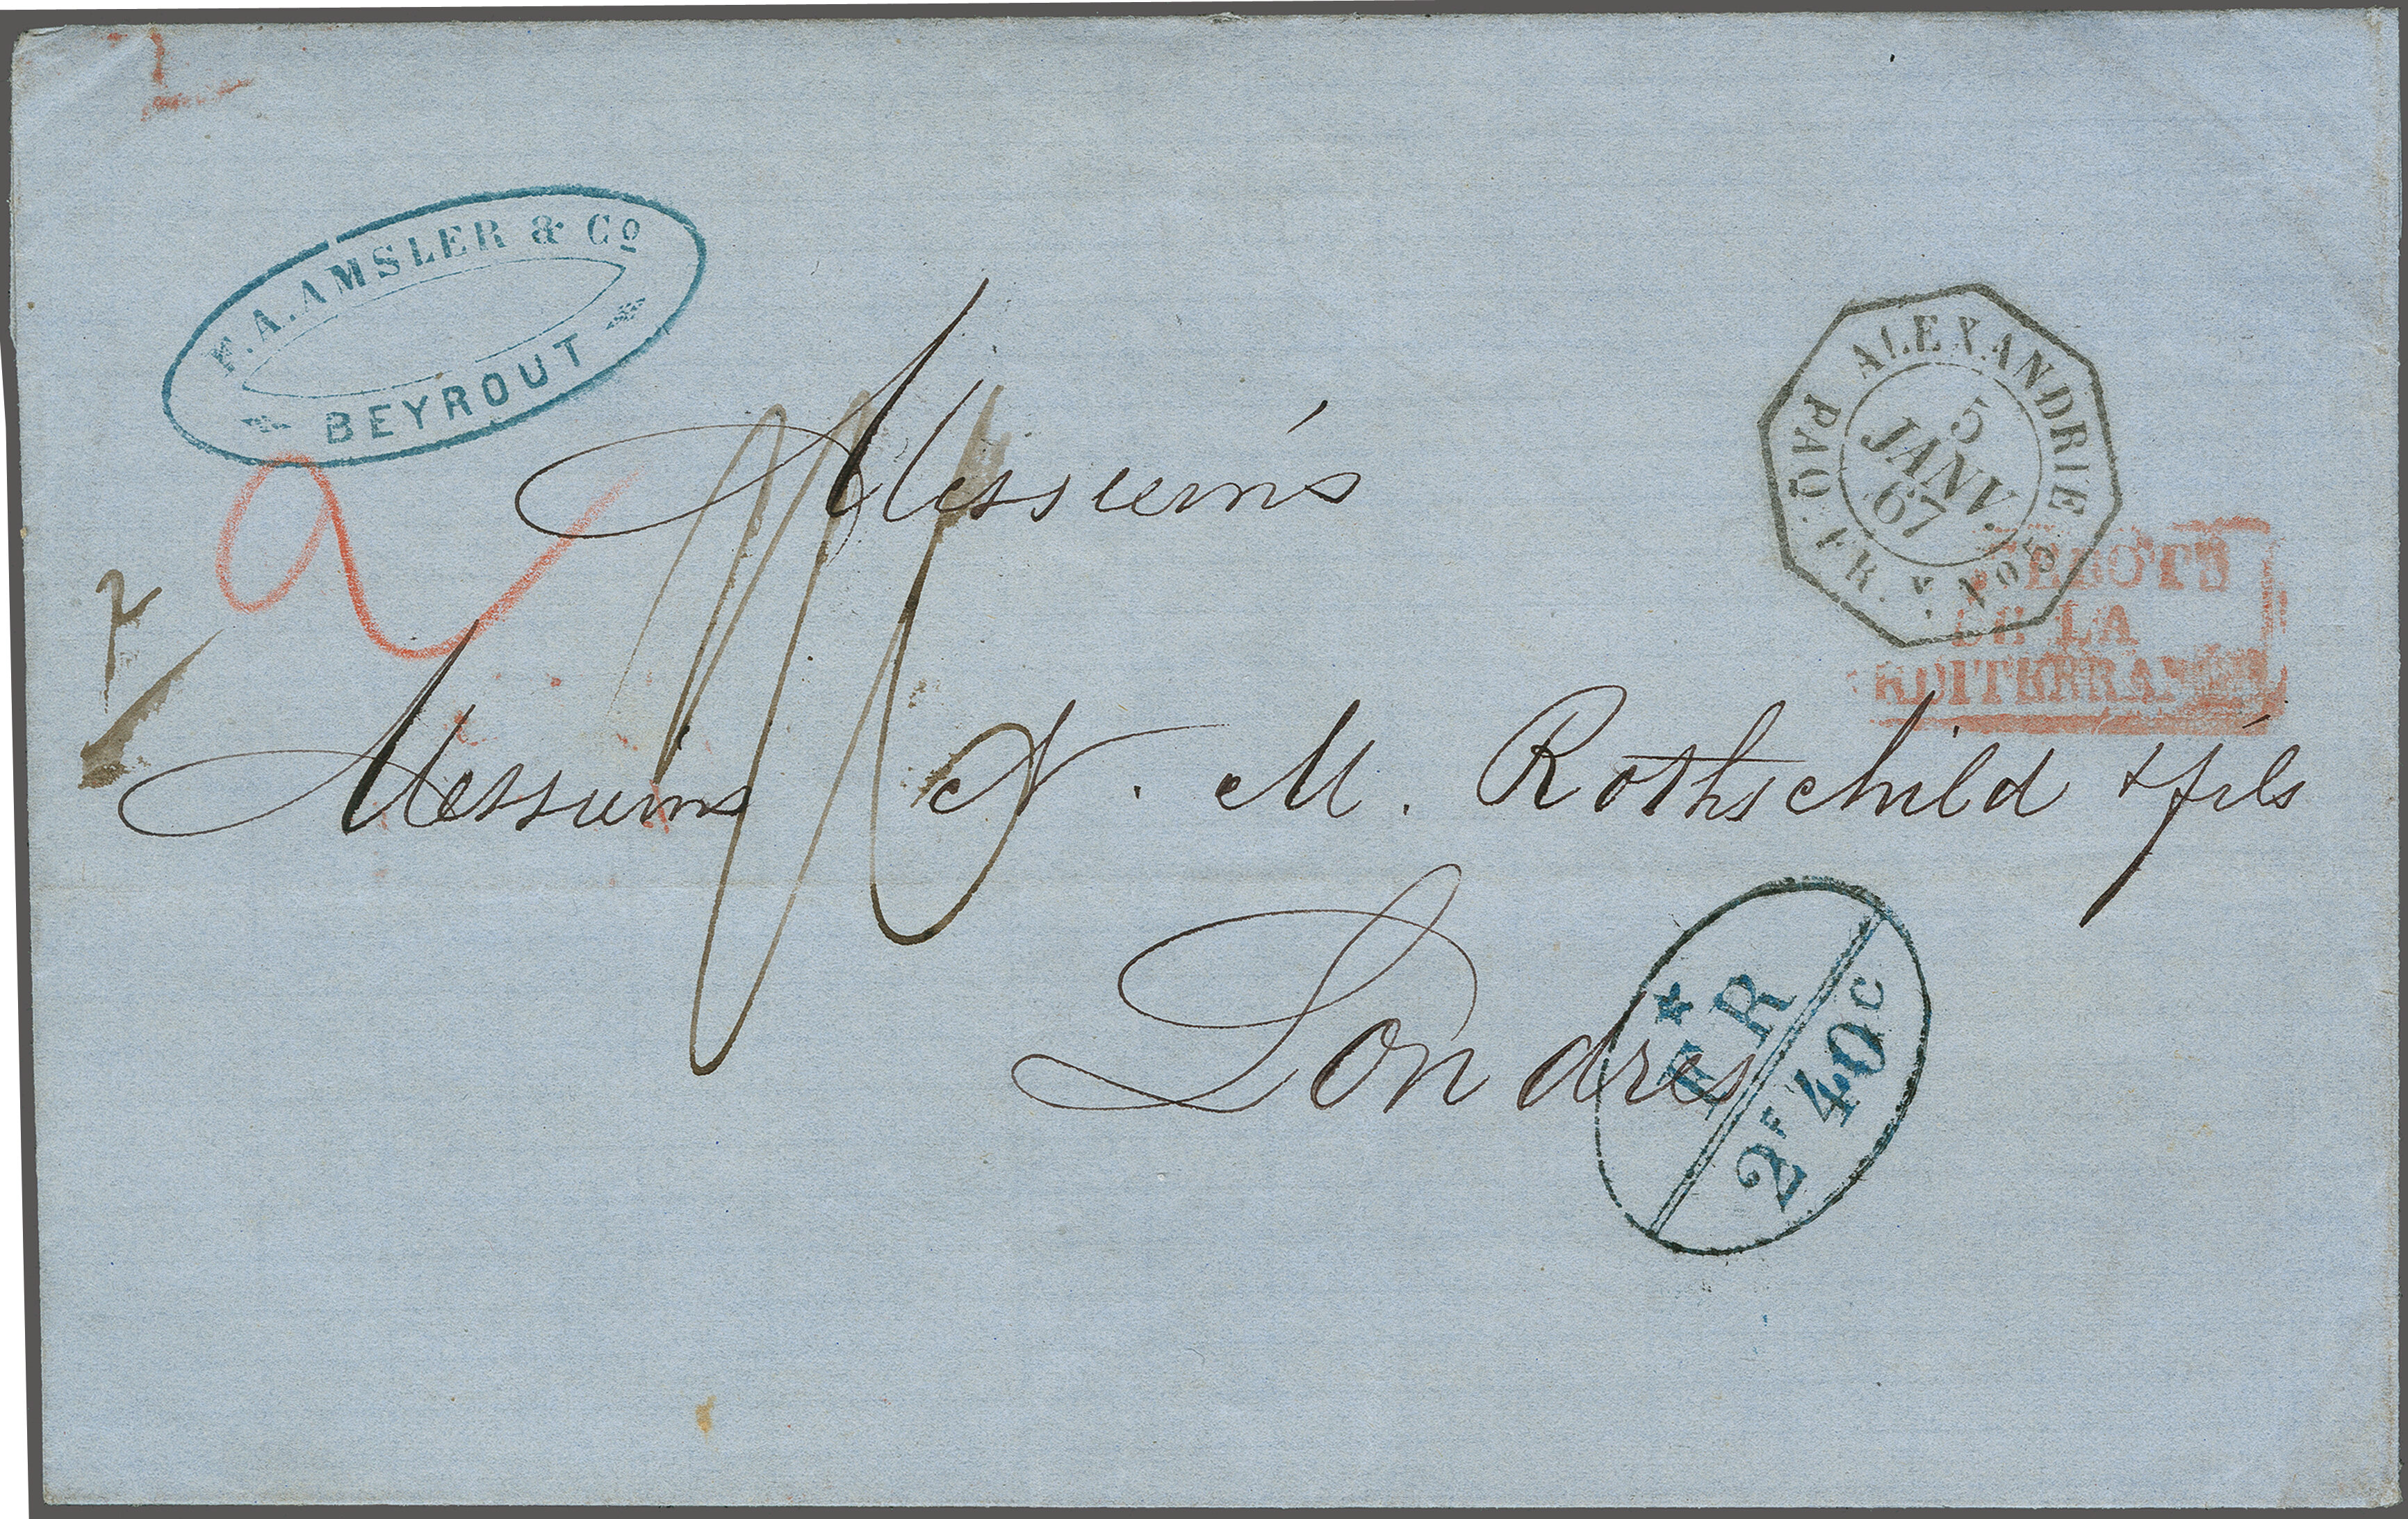 F. A. AMSLER & Co
BEYROUT
ALEXANDRIE
5
JANV.
67
PAQ. FR. V. No 5
LA
2
Messieurs
Messieurs N. M. Rothschild & fils
Londres
FR
2F 40C